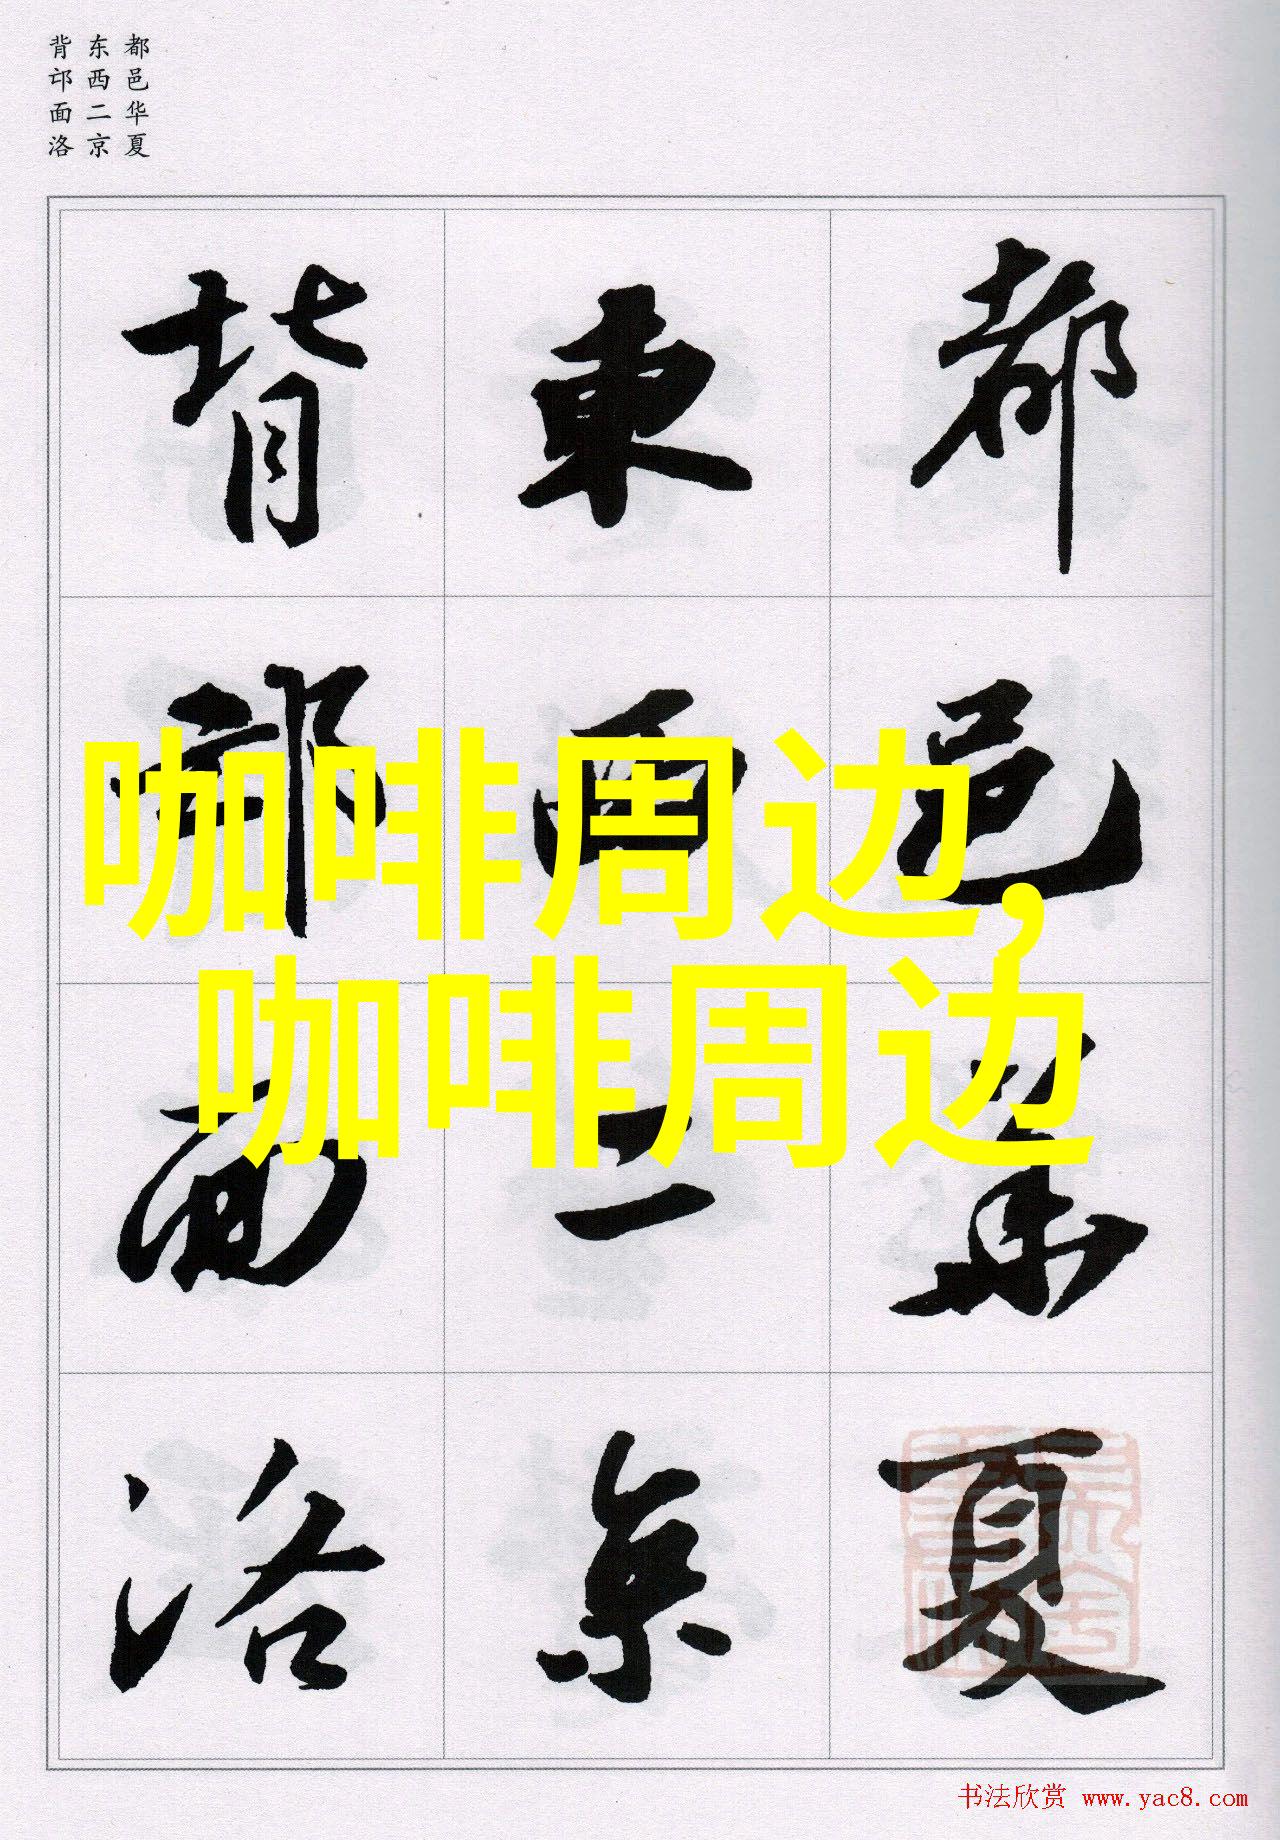 都邑华夏
东西二京
背邙面洛
都邑華夏
東西二京
背邙面洛
咖啡周边,
咖啡周边
书法欣赏 www.yac8.com